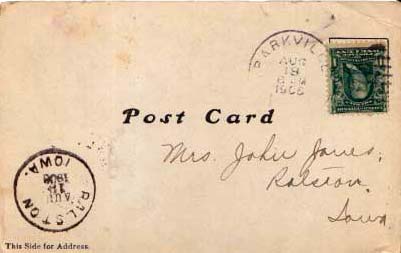 PARKVILLE
AUG
19
6 AM
1906
Post Card
Mrs. John Jones,
Ralston.
Iowa.
RALSTON
AUG
1906
IOWA.
This Side for Address